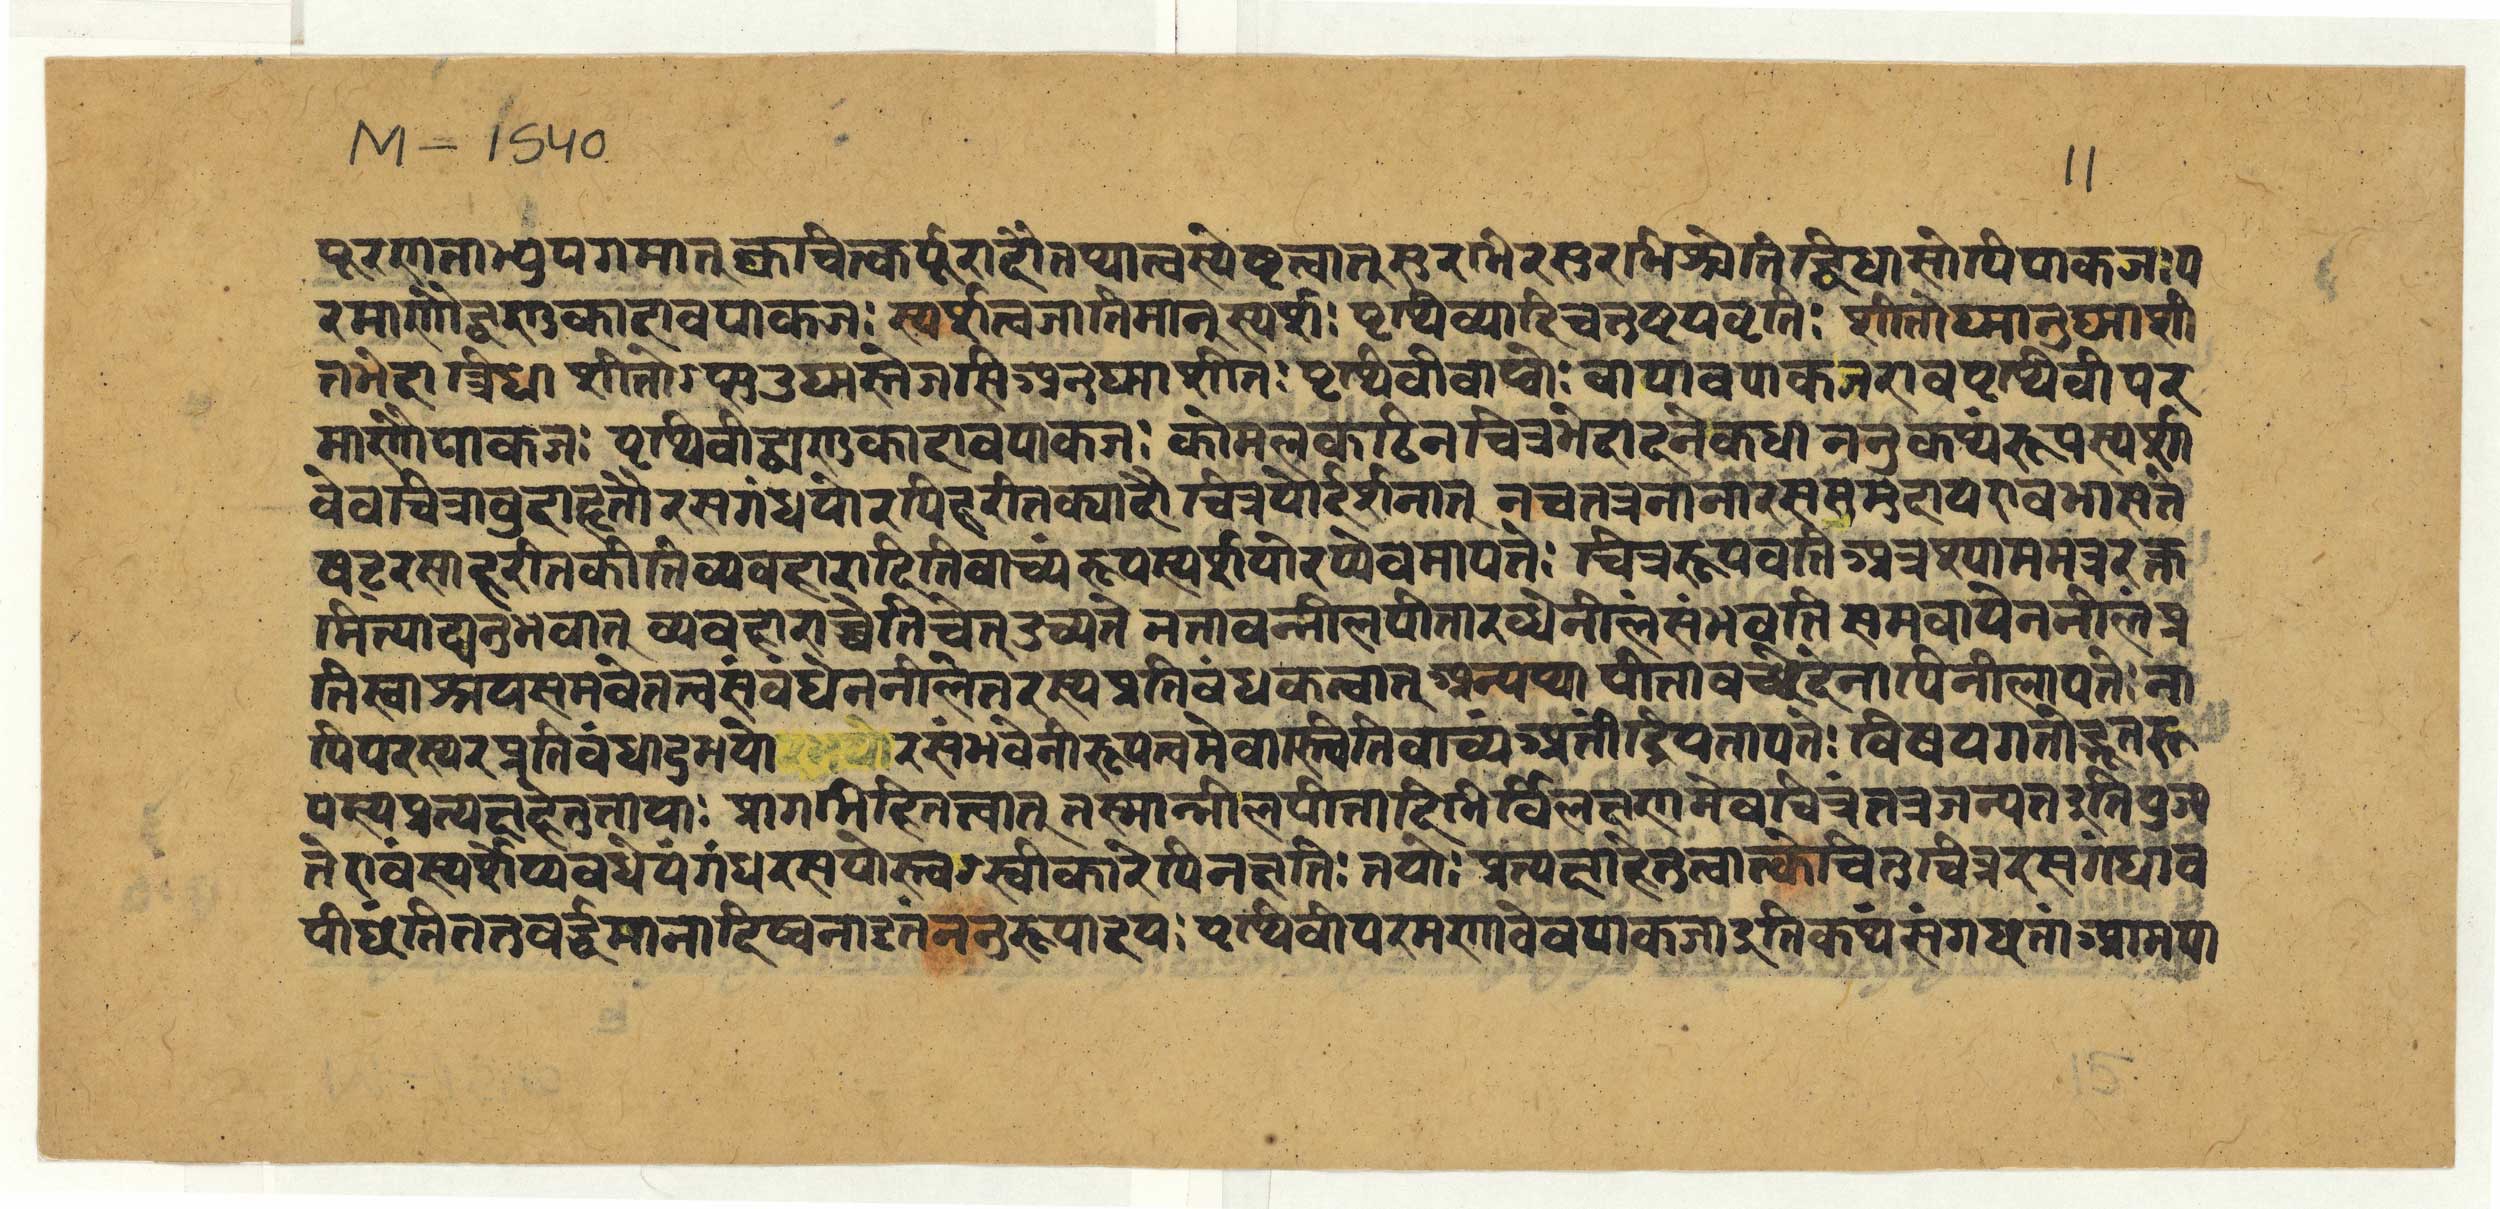 M = 1540
11
पूरणानाभ्युपगमात् क्वचित्कर्पूरादौ तथात्वस्येष्टत्वात् सुरभिरसुरभिश्चेति द्विधा सोपि पाकजः प
रमाणौ द्व्यणुकादावपाकजः स्पर्शत्वजातिमान् स्पर्शः पृथिव्यादिचतुष्टयवृत्तिः शीतोष्मानुष्माशी
तभेदात्त्रिधा शीतोऽप्सु उष्मस्तेजसि अनुष्माशीतः पृथिवीवाय्वोः वायावपाकज एव पृथिवीपर
माणौ पाकजः पृथिवीद्व्यणुकादावपाकजः कोमलकठिनचित्रभेदादनेकधा ननु कथं रूपस्पर्शा
वेव चित्रावुदाहृतौ रसगंधयोरपि हरीतक्यादौ चित्रयोर्दर्शनात् न च तत्र नानारससमुदाय एवभासते
षट्रसा हरीतकीति व्यवहारादिति वाच्यं रूपस्पर्शयोरप्येवमापत्तेः चित्ररूपवति अत्र श्याममत्र रक्त
मित्याद्यनुभवात् व्यवहाराच्चेति चेत् उच्यते न तावन्नीलपीतारब्धे नीलं संभवति समवायेन नीलं प्र
ति स्वाश्रयसमवेतत्वसंबंधेन नीलेतरस्य प्रतिबंधकत्वात् अन्यथा पीतावच्छेदेनापि नीलापत्तेः ना
पि परस्परप्रतिबंधादुभयोरसंभवे नीरूपत्वमेवास्त्विति वाच्यं अतींद्रियतापत्तेः विषयगतोद्भूतरू
पस्य प्रत्यक्षहेतुतायाः प्रागभिहितत्वात् तस्मान्नीलपीतादिभिर्विलक्षणमेव चित्रं तत्र जन्यत इति युज्य
ते एवं स्पर्शेप्यवधेयं गंधरसयोस्त्वऽस्वीकारेपि न क्षतिः तयोः प्रत्यक्षाहेतुत्वात् केचित्तु चित्ररसगंधाव
पीछंति तत्तु वर्द्धमानादिष्वनादृतं ननु रूपादयः पृथिवीपरमणावेव पाकजा इति कथं संगछतां आमपा